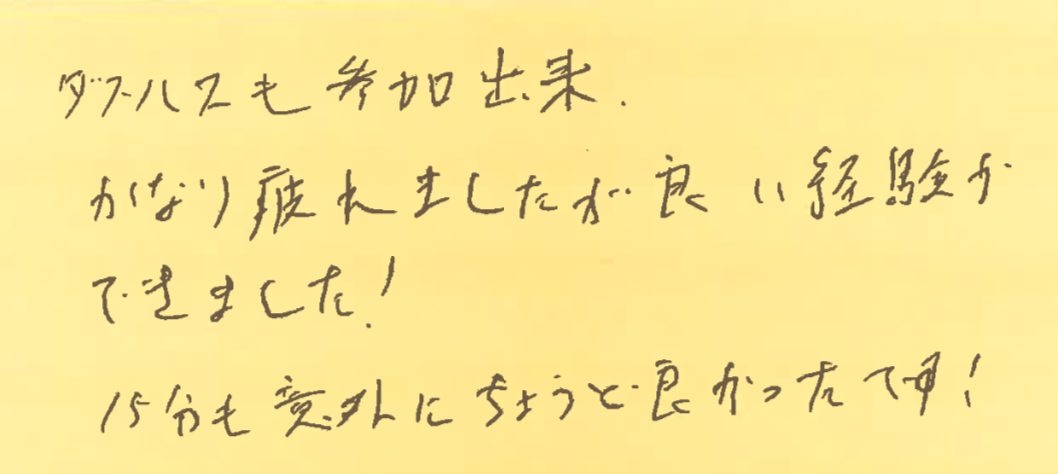 ダブルスも参加出来.
かなり疲れましたが良い経験が
できました!
15分も意外にちょうど良かったです!